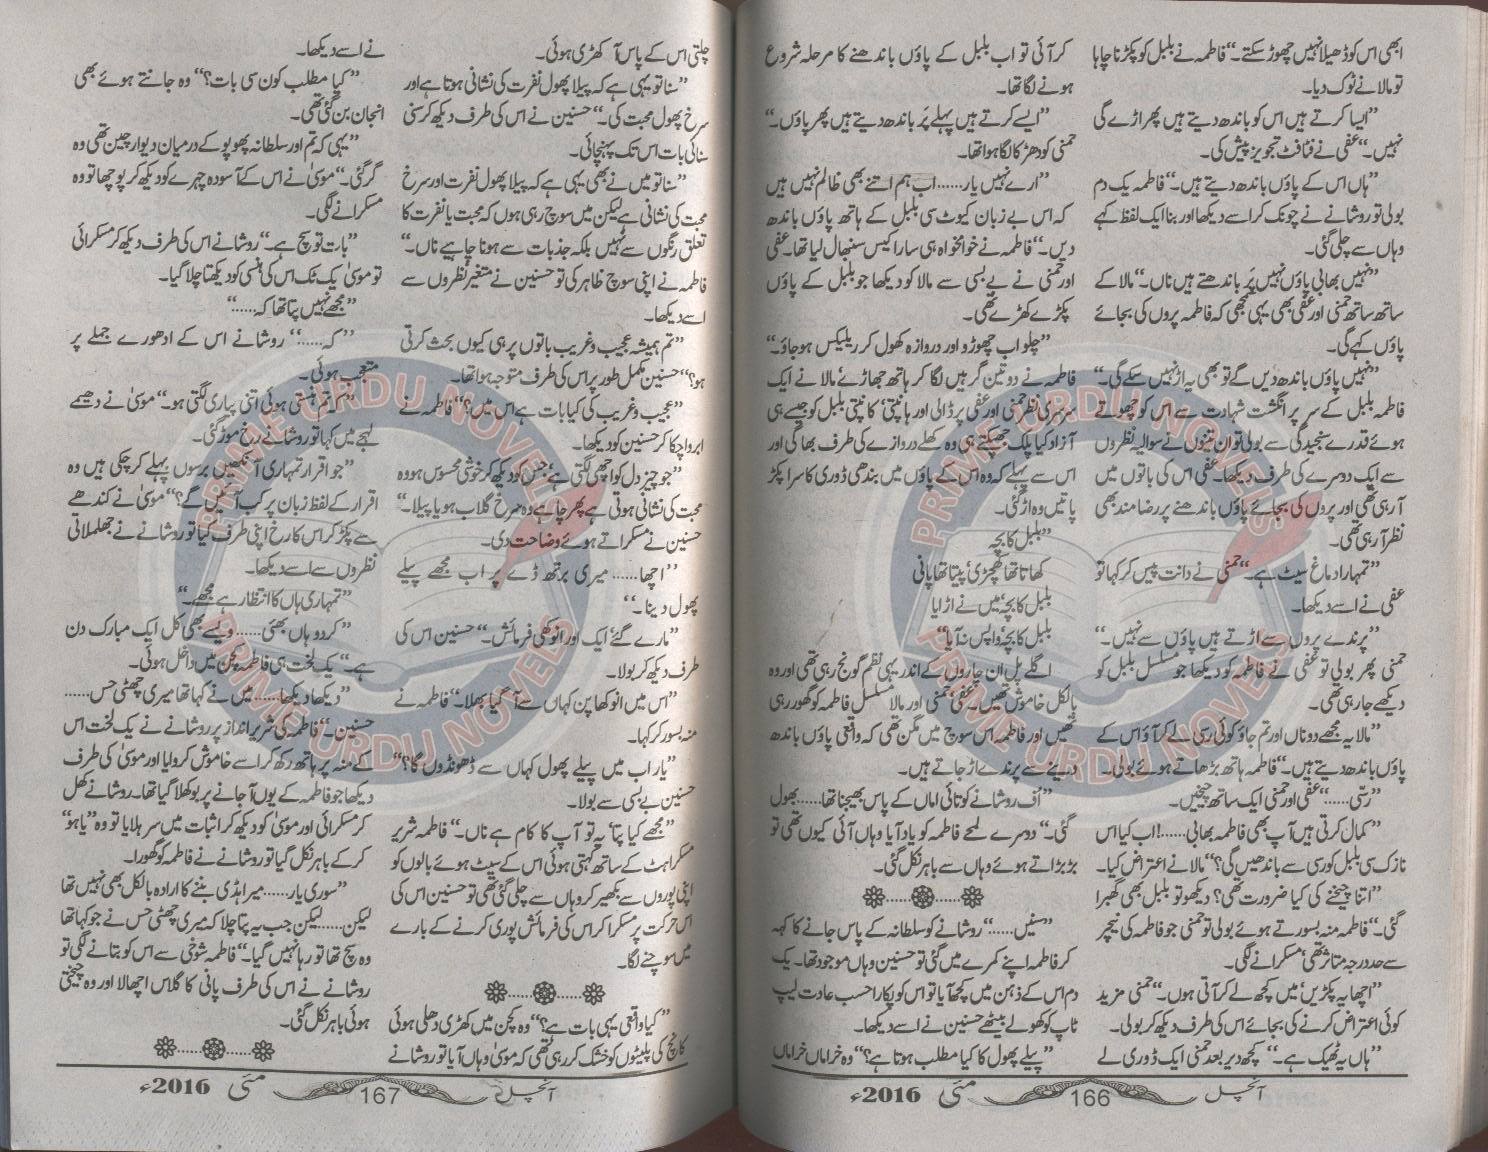 ابھی اس کو ڈھیلا نہیں چھوڑ سکتے۔“ فاطمہ نے بلبل کو پکڑنا چاہا
تو مالا نے ٹوک دیا۔
”ایسا کرتے ہیں اس کو باندھ دیتے ہیں پھر اڑے گی
نہیں۔“ عفی نے فٹافٹ تجویز پیش کی۔
”ہاں اس کے پاؤں باندھ دیتے ہیں۔“ فاطمہ یک دم
بولی تو روشانے نے چونک کر اسے دیکھا اور بنا ایک لفظ کہے
وہاں سے چلی گئی۔
”نہیں بھابی پاؤں نہیں پَر باندھتے ہیں ناں۔“ مالا کے
ساتھ ساتھ حمنی اور عفی بھی یہی سمجھی کہ فاطمہ پروں کی بجائے
پاؤں کہے گی۔
”نہیں پاؤں باندھ دیں گے تو بھی یہ اڑ نہیں سکے گی۔“
فاطمہ بلبل کے سر پر انگشت شہادت سے اس کو چھوتے
ہوئے قدرے سنجیدگی سے بولی تو ان تینوں نے سوالیہ نظروں
سے ایک دوسرے کی طرف دیکھا۔ عفی اس کی باتوں میں
آ رہی تھی اور پروں کی بجائے پاؤں باندھنے پر رضامند بھی
نظر آ رہی تھی۔
”تمہارا دماغ سیٹ ہے۔“ حمنی نے دانت پیس کر کہا تو
عفی نے اسے دیکھا۔
”پرندے پروں سے اڑتے ہیں پاؤں سے نہیں۔“
حمنی پھر بولی تو عفی نے فاطمہ کو دیکھا جو مسلسل بلبل کو
دیکھے جا رہی تھی۔
”مالا یہ مجھے دو ناں اور تم جاؤ کوئی رسی لے کر آؤ اس کے
پاؤں باندھ دیتے ہیں۔“ فاطمہ ہاتھ بڑھاتے ہوئے بولی۔
”رسّی......“ عفی اور حمنی ایک ساتھ چیخیں۔
”کمال کرتی ہیں آپ بھی فاطمہ بھابی......! اب کیا اس
نازک سی بلبل کو رسی سے باندھیں گی؟“ مالا نے اعتراض کیا۔
”اتنا چیخنے کی کیا ضرورت تھی؟ دیکھو تو بلبل بھی گھبرا
گئی۔“ فاطمہ منہ بسورتے ہوئے بولی تو حمنی جو فاطمہ کی نیچر
سے حد درجہ متاثر تھی، مسکرانے لگی۔
”اچھا یہ پکڑیں، میں کچھ لے کر آتی ہوں۔“ حمنی مزید
کوئی اعتراض کرنے کی بجائے اس کی طرف دیکھ کر بولی۔
”ہاں یہ ٹھیک ہے۔“ کچھ دیر بعد حمنی ایک ڈوری لے
کر آئی تو اب بلبل کے پاؤں باندھنے کا مرحلہ شروع
ہونے لگا تھا۔
”ایسے کرتے ہیں پہلے پَر باندھ دیتے ہیں پھر پاؤں۔“
حمنی کو دھڑکا لگا ہوا تھا۔
”ارے نہیں یار...... اب ہم اتنے بھی ظالم نہیں ہیں
کہ اس بے زبان کیوٹ سی بلبل کے ہاتھ پاؤں باندھ
دیں۔“ فاطمہ نے خوامخواہ ہی سارا کیس سنبھال لیا تھا۔ عفی
اور حمنی نے بے بسی سے مالا کو دیکھا جو بلبل کے پاؤں
پکڑے کھڑے تھی۔
”چلو اب چھوڑو اور دروازہ کھول کر ریلیکس ہو جاؤ۔“
فاطمہ نے دو تین گرہیں لگا کر ہاتھ جھاڑے، مالا نے ایک
سرسری نظر حمنی اور عفی پر ڈالی اور ہانپتی، کانپتی بلبل کو جیسے ہی
آزاد کیا پلک جھپکتے ہی وہ کھلے دروازے کی طرف بھاگی اور
اس سے پہلے کہ وہ اس کے پاؤں میں بندھی ڈوری کا سرا پکڑ
پاتیں وہ اڑ گئی۔
”بلبل کا بچہ
کھاتا تھا کھچڑی، پیتا تھا پانی
بلبل کا بچہ، میں نے اڑایا
بلبل کا بچہ، واپس نا آیا“
اگلے پل ان چاروں کے اندر یہی نظم گونج رہی تھی اور وہ
بالکل خاموش تھیں۔ عفی، حمنی اور مالا مسلسل فاطمہ کو گھور رہی
تھیں اور فاطمہ اس سوچ میں مگن تھی کہ واقعی پاؤں باندھ
دینے سے پرندے اڑ جاتے ہیں۔
”اُف روشانے کو تائی اماں کے پاس بھیجنا تھا...... بھول
گئی۔“ دوسرے لمحے فاطمہ کو یاد آیا وہاں آئی کیوں تھی تو
بڑبڑاتے ہوئے وہاں سے باہر نکل گئی۔
”سنیں......“ روشانے کو سلطانہ کے پاس جانے کا کہہ
کر فاطمہ اپنے کمرے میں گئی تو حسنین وہاں موجود تھا۔ یک
دم اس کے ذہن میں کچھ آیا تو اس کو پکارا حسب عادت لیپ
ٹاپ کو کھولے بیٹھے حسنین نے اسے دیکھا۔
”پیلے پھول کا کیا مطلب ہوتا ہے؟“ وہ خراماں خراماں
آنچل 166 مئی 2016ء
چلتی اس کے پاس آ کھڑی ہوئی۔
”سنا تو یہی ہے کہ پیلا پھول نفرت کی نشانی ہوتا ہے اور
سرخ پھول محبت کی۔“ حسنین نے اس کی طرف دیکھ کر سنی
سنائی بات اس تک پہنچائی۔
”سنا تو میں نے بھی یہی ہے کہ پیلا پھول نفرت اور سرخ
محبت کی نشانی ہے لیکن میں سوچ رہی ہوں کہ محبت یا نفرت کا
تعلق رنگوں سے نہیں بلکہ جذبات سے ہونا چاہیے ناں۔“
فاطمہ نے اپنی سوچ ظاہر کی تو حسنین نے متغیر نظروں سے
اسے دیکھا۔
”تم ہمیشہ عجیب و غریب باتوں پر ہی کیوں بحث کرتی
ہو؟“ حسنین مکمل طور پر اس کی طرف متوجہ ہوا تھا۔
”عجیب و غریب کی کیا بات ہے اس میں؟“ فاطمہ نے
ابرو اچکا کر حسنین کو دیکھا۔
”جو چیز دل کو اچھی لگتی ہے، جس کو دیکھ کر خوشی محسوس ہو وہ
محبت کی نشانی ہوتی ہے پھر چاہے وہ سرخ گلاب ہو یا پیلا۔“
حسنین نے مسکراتے ہوئے وضاحت دی۔
”اچھا...... میری برتھ ڈے پر اب مجھے پیلے
پھول دینا۔“
”مارے گئے ایک اور انوکھی فرمائش۔“ حسنین اس کی
طرف دیکھ کر بولا۔
”اس میں انوکھا پن کہاں سے آ گیا بھلا۔“ فاطمہ نے
منہ بسور کر کہا۔
”یار اب میں پیلے پھول کہاں سے ڈھونڈوں گا؟“
حسنین بے بسی سے بولا۔
”مجھے کیا پتا، یہ تو آپ کا کام ہے ناں۔“ فاطمہ شریر
مسکراہٹ کے ساتھ کہتی ہوئی اس کے سیٹ ہوئے بالوں کو
اپنی پوروں سے بکھیر کر وہاں سے چلی گئی تھی تو حسنین اس کی
اس حرکت پر مسکرا کر اس کی فرمائش پوری کرنے کے بارے
میں سوچنے لگا۔
”کیا واقعی یہی بات ہے؟“ وہ کچن میں کھڑی دھلی ہوئی
کانچ کی پلیٹوں کو خشک کر رہی تھی کہ موسیٰ وہاں آیا تو روشانے
نے اسے دیکھا۔
”کیا مطلب کون سی بات؟“ وہ جانتے ہوئے بھی
انجان بن گئی تھی۔
”یہی کہ تم اور سلطانہ پھوپو کے درمیان دیوار چین تھی وہ
گر گئی۔“ موسیٰ نے اس کے آسودہ چہرے کو دیکھ کر پوچھا تو وہ
مسکرانے لگی۔
”بات تو سچ ہے۔“ روشانے اس کی طرف دیکھ کر مسکرائی
تو موسیٰ یک ٹک اس کی ہنسی کو دیکھتا چلا گیا۔
”مجھے نہیں پتا تھا کہ......“
”کہ......؛“ روشانے اس کے ادھورے جملے پر
متعجب ہوئی۔
”کہ تم ہنستی ہوئی اتنی پیاری لگتی ہو۔“ موسیٰ نے دھیمے
لہجے میں کہا تو روشانے رخ موڑ گئی۔
”جو اقرار تمہاری آنکھیں برسوں پہلے کر چکی ہیں وہ
اقرار کے لفظ زبان پر کب آئیں گے؟“ موسیٰ نے کندھے
سے پکڑ کر اس کا رخ اپنی طرف کیا تو روشانے نے جھلملاتی
نظروں سے اسے دیکھا۔
”تمہاری ہاں کا انتظار ہے مجھے۔“
”کر دو ہاں بھئی...... ویسے بھی کل ایک مبارک دن
ہے۔“ یک لخت ہی فاطمہ کچن میں داخل ہوئی۔
”دیکھا دیکھا...... میں نے کہا تھا میری چھٹی حس......
حسنین۔“ فاطمہ کی شریر انداز پر روشانے نے یک لخت اس
کے منہ پر ہاتھ رکھ کر اسے خاموش کروایا اور موسیٰ کی طرف
دیکھا جو فاطمہ کے یوں آ جانے پر بوکھلا گیا تھا۔ روشانے کھل
کر مسکرائی اور موسیٰ کو دیکھ کر اثبات میں سر ہلایا تو وہ ”یاہو“
کر کے باہر نکل گیا تو روشانے نے فاطمہ کو گھورا۔
”سوری یار...... میرا ہڈی بننے کا ارادہ بالکل بھی نہیں تھا
لیکن...... لیکن جب یہ پتا چلا کہ میری چھٹی حس نے جو کہا تھا
وہ سچ تھا تو رہا نہیں گیا۔“ فاطمہ شوخی سے اس کو بتانے لگی تو
روشانے نے اس کی طرف پانی کا گلاس اچھالا اور وہ چیختی
ہوئی باہر نکل گئی۔
آنچل 167 مئی 2016ء
PRIME URDU NOVELS
PRIME URDU NOVELS
PRIME URDU NOVELS
PRIME URDU NOVELS